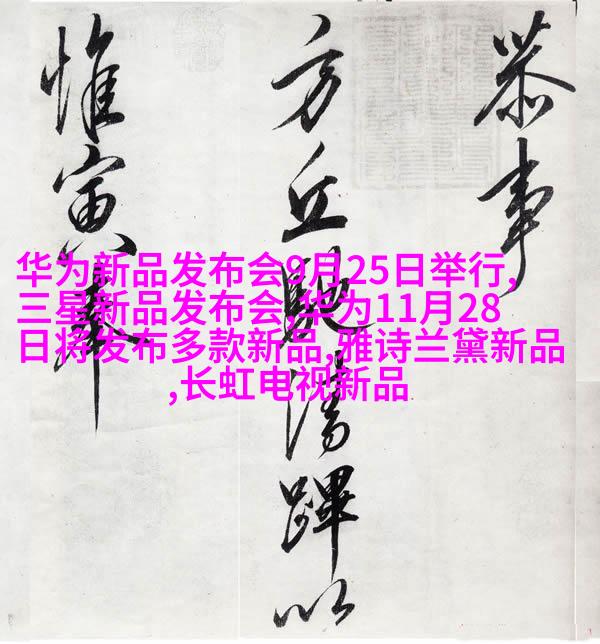 恭事
方丘馳蹕以
惟寅奉
华为新品发布会9月25日举行,
三星新品发布会,华为11月28
日将发布多款新品,雅诗兰黛新品
,长虹电视新品